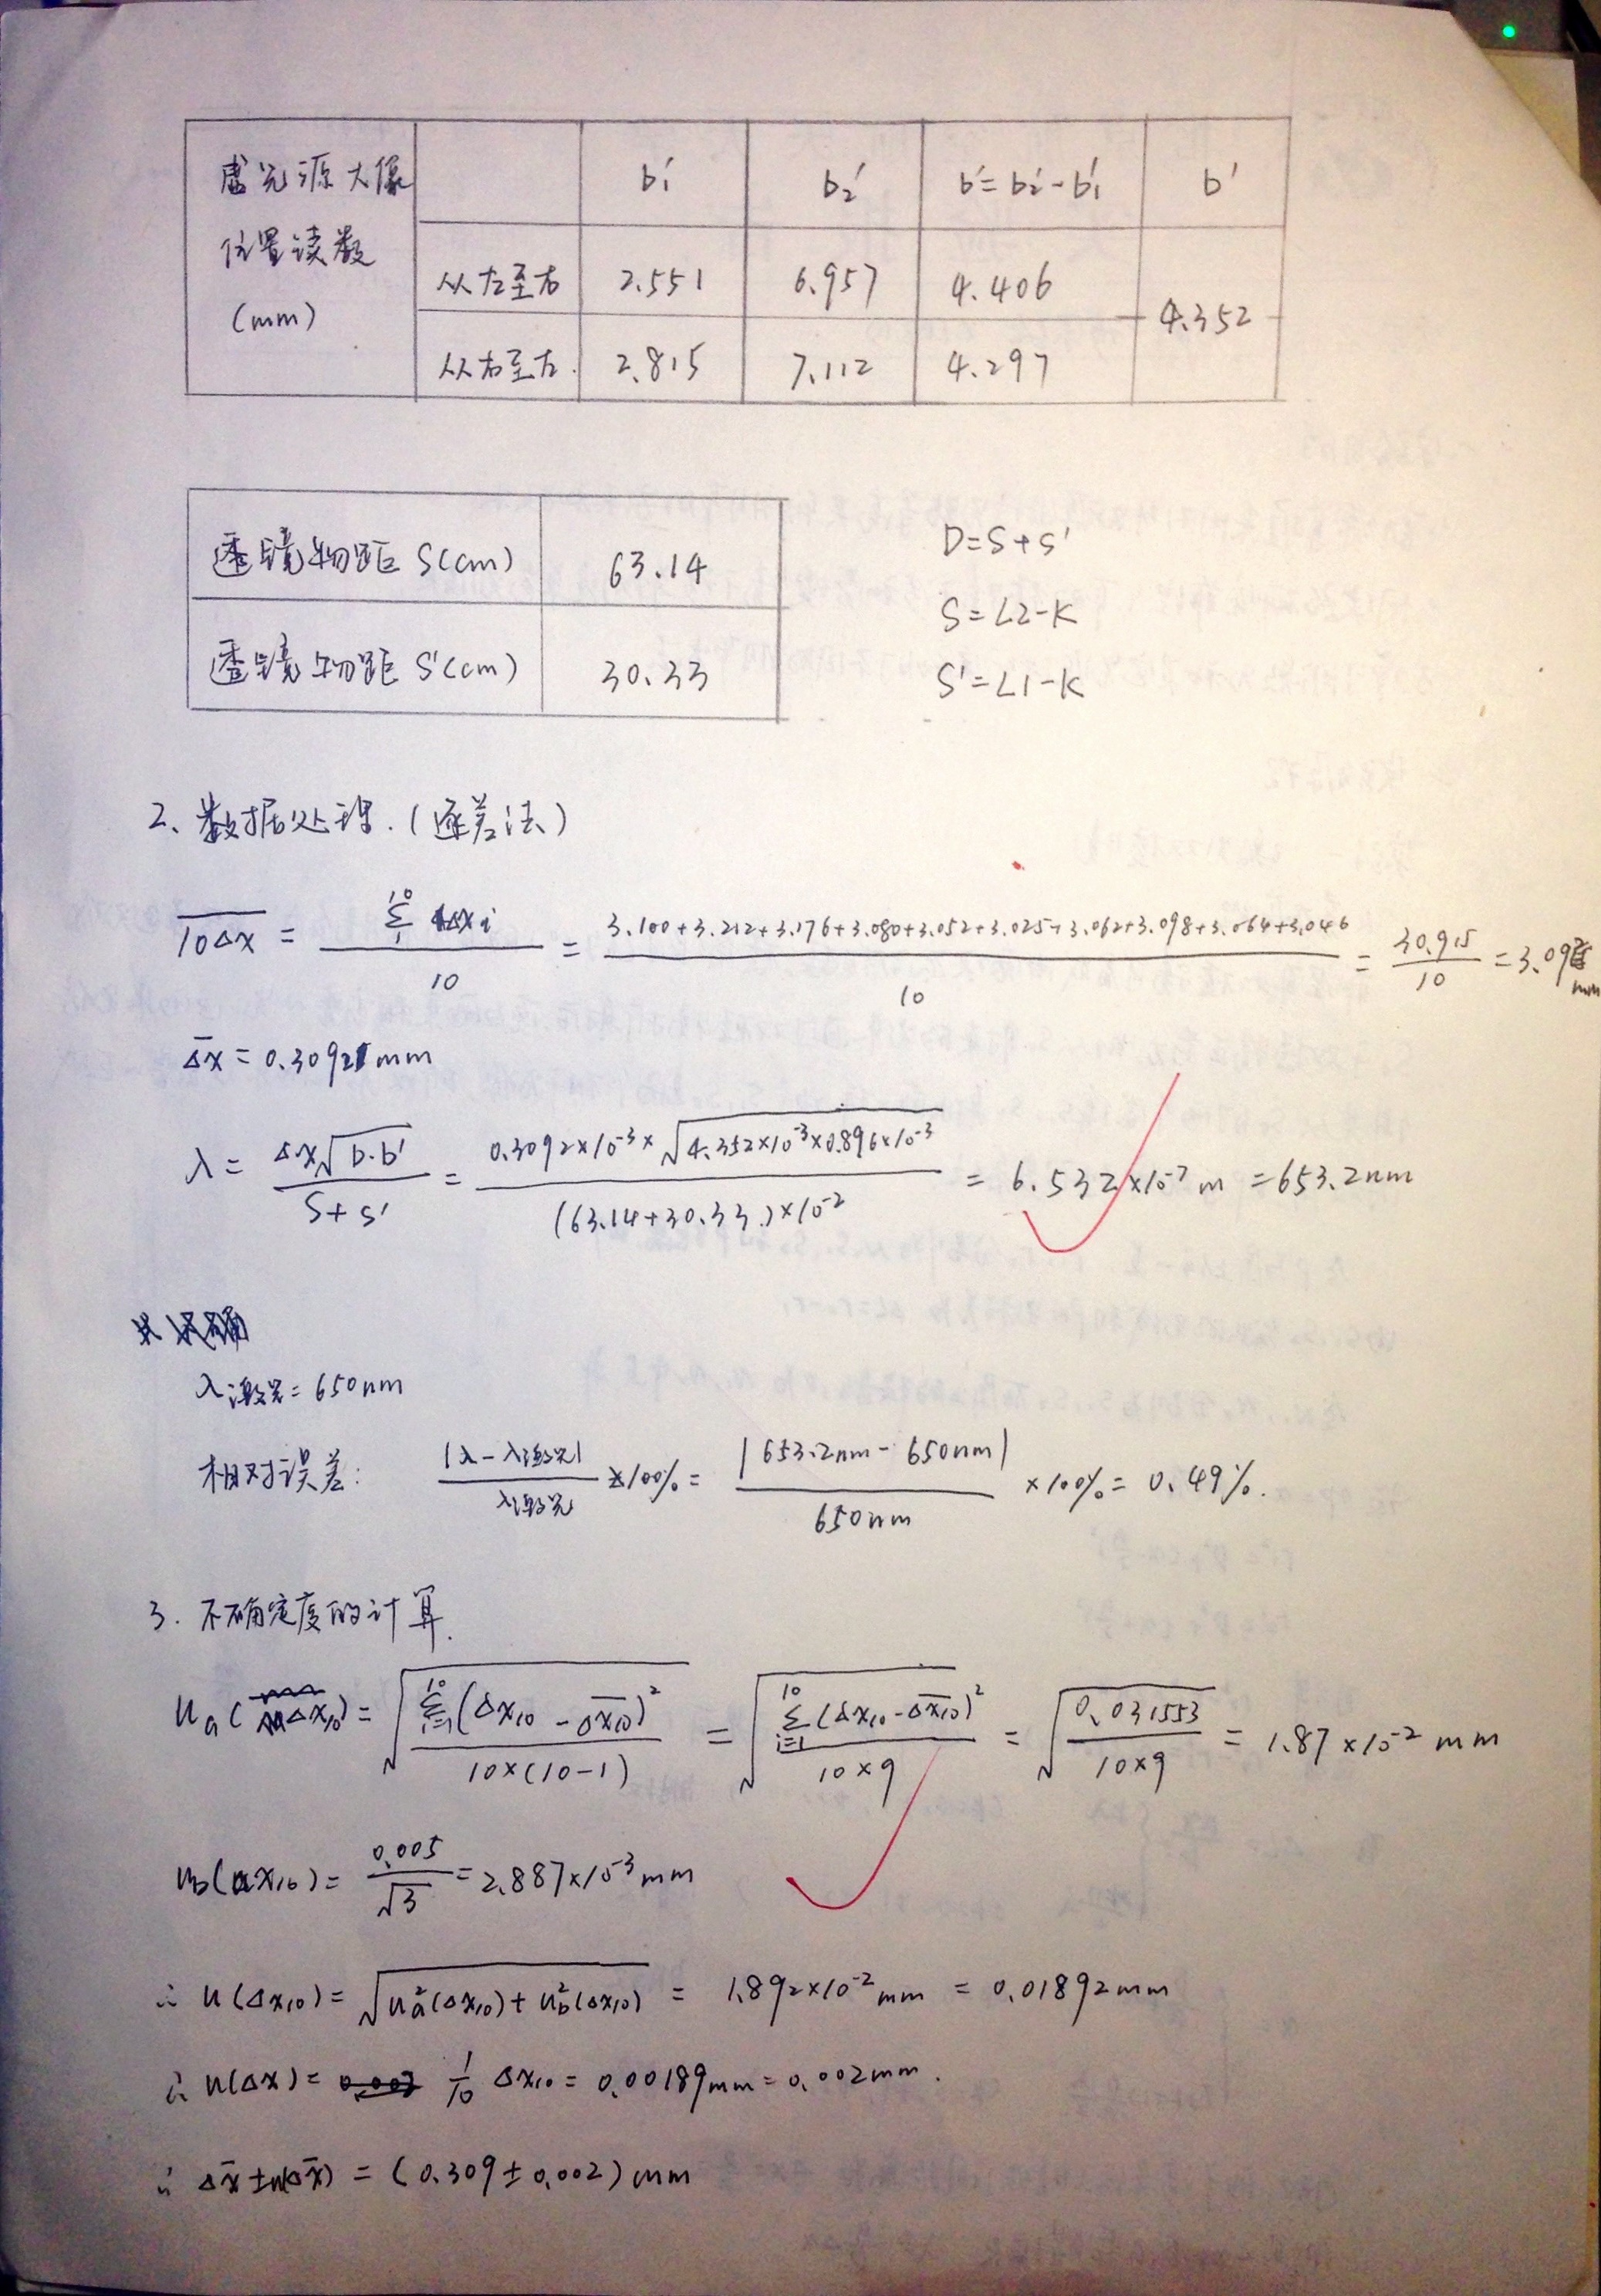 虚光源大像位置读数(mm) b₁′ b₂′ b′=b₂′-b₁′ b′
从左至右 2.551 6.957 4.406 4.352
从右至左 2.815 7.112 4.297
透镜物距 S(cm) 63.14
透镜物距 S′(cm) 30.33
D=S+S′
S=L2-K
S′=L1-K
2、数据处理.(逐差法)
10Δx̅ = Σ Δxi / 10 = (3.100+3.212+3.176+3.080+3.052+3.025+3.062+3.098+3.064+3.046) / 10 = 30.915/10 = 3.092 mm
Δx̅ = 0.3092mm
λ = Δx√(b·b′) / (S+S′) = 0.3092×10⁻³×√(4.352×10⁻³×0.896×10⁻³) / ((63.14+30.33)×10⁻²) = 6.532×10⁻⁷ m = 653.2nm
λ激光=650nm
相对误差: |λ-λ激光| / λ激光 ×100% = |653.2nm-650nm| / 650nm ×100% = 0.49%.
3. 不确定度的计算.
Ua(Δx₁₀) = √(Σi=1 10 (Δx₁₀-Δx̅₁₀)² / 10×(10-1)) = √(Σi=1 10 (Δx₁₀-Δx̅₁₀)² / 10×9) = √(0.031553 / 10×9) = 1.87×10⁻² mm
Ub(Δx₁₀) = 0.005/√3 = 2.887×10⁻³ mm
∴ u(Δx₁₀) = √(ua²(Δx₁₀)+ub²(Δx₁₀)) = 1.892×10⁻² mm = 0.01892mm
∴ u(Δx) = 1/10 Δx₁₀ = 0.00189mm = 0.002mm.
∴ Δx̅±u(Δx̅) = (0.309±0.002)mm